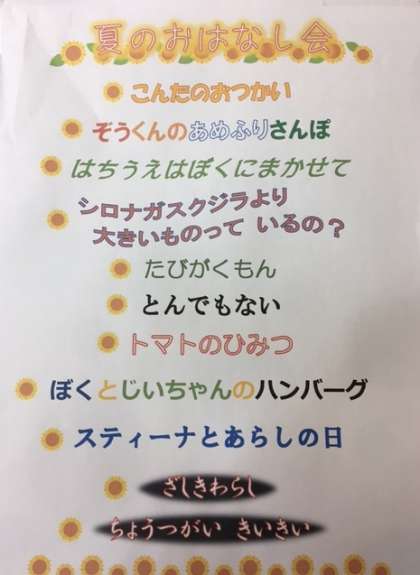 夏のおはなし会
こんたのおつかい
ぞうくんのあめふりさんぽ
はちうえはぼくにまかせて
シロナガスクジラより
大きいものって いるの？
たびがくもん
とんでもない
トマトのひみつ
ぼくとじいちゃんのハンバーグ
スティーナとあらしの日
ざしきわらし
ちょうつがい きいきい